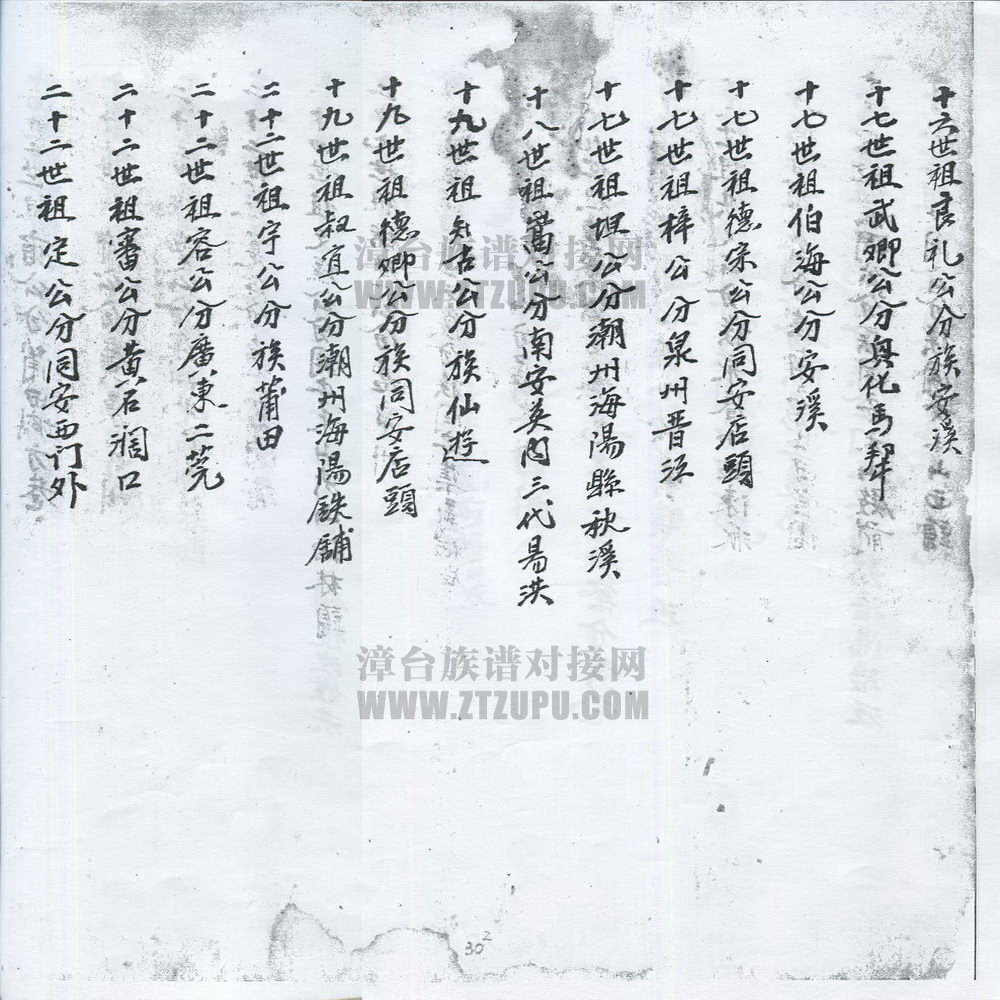 十六世祖君礼公分族安溪
十七世祖武卿公分興化馬犀
十七世祖伯海公分安溪
十七世祖德宗公分同安店頭
十七世祖梓公分泉州晋江
十七世祖坦公分潮州海陽縣秋溪
十八世祖萬公分南安英内三代易洪
十九世祖知古公分族仙遊
十九世祖德卿公分族同安店頭
十九世祖叔宜公分潮州海陽鉄舖
二十二世祖宇公分族莆田
二十二世祖容公分廣東二莞
二十二世祖審公分黃石澗口
二十二世祖定公分同安西门外
漳台族谱对接网
WWW.ZTZUPU.COM
漳台族谱对接网
WWW.ZTZUPU.COM
30 2